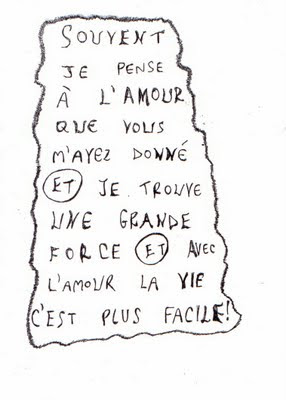 SOUVENT
JE PENSE
À L'AMOUR
QUE VOUS
M'AVEZ DONNÉ
ET JE TROUVE
UNE GRANDE
FORCE ET AVEC
L'AMOUR LA VIE
C'EST PLUS FACILE!